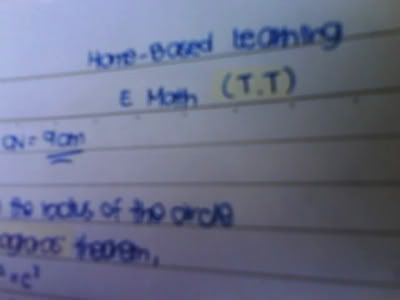 Home-Based Learning
E Math (T.T)
ON = 9cm
the radius of the circle
theorem,